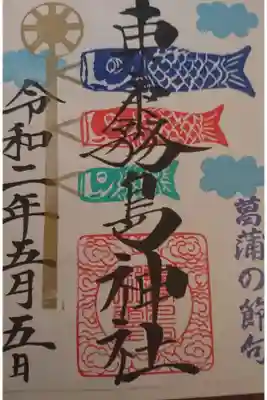 菖蒲の節句
東 島神社
令和二年五月五日